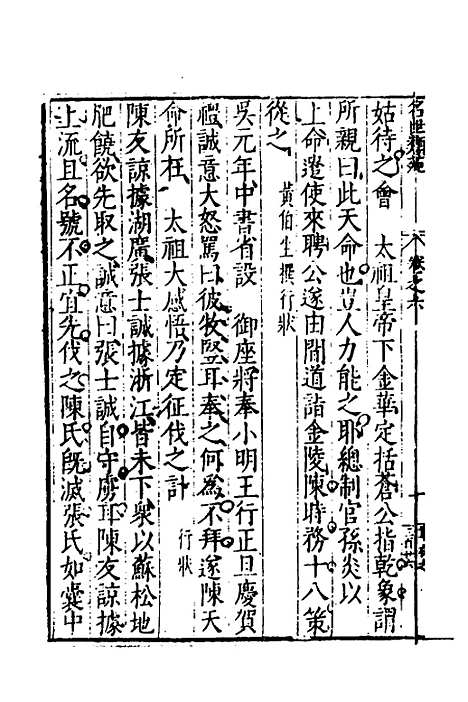 名世類苑
卷之六
姑待之會　太祖皇帝下金華定括蒼公指乾象謂
所親曰此天命也豈人力能之耶總制官孫炎以
上命遣使來聘公遂由間道詣金陵陳時務十八策
從之　黃伯生撰行狀
吳元年中書省設　御座將奉小明王行正旦慶賀
禮誠意大怒罵曰彼牧豎耳奉之何為不拜遂陳天
命所在　太祖大感悟乃定征伐之計　行狀
陳友諒據湖廣張士誠據浙江皆未下眾以蘇松地
肥饒欲先取之誠意曰張士誠自守虜耳陳友諒據
上流且名號不正宜先伐之陳氏既滅張氏如囊中